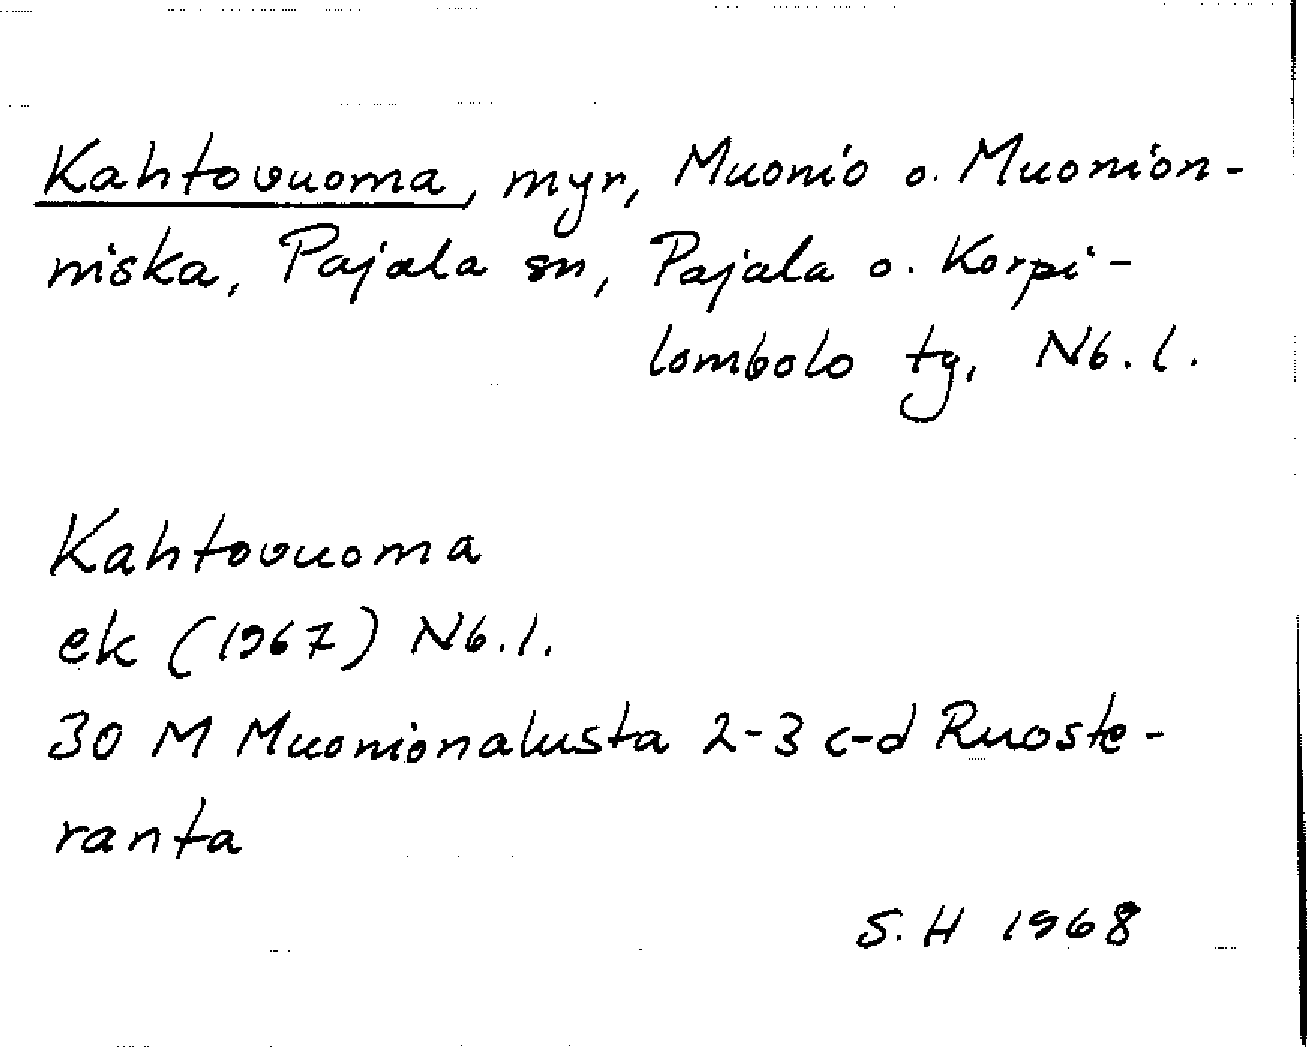 Kahtovuoma, myr, Muonio o. Muonion-
niska, Pajala sn, Pajala o. Korpi-
lombolo tg, Nb. l.
Kahtovuoma
ek (1967) Nb. l.
30 M Muonionalusta 2-3 c-d Ruoste-
ranta
S. H 1968